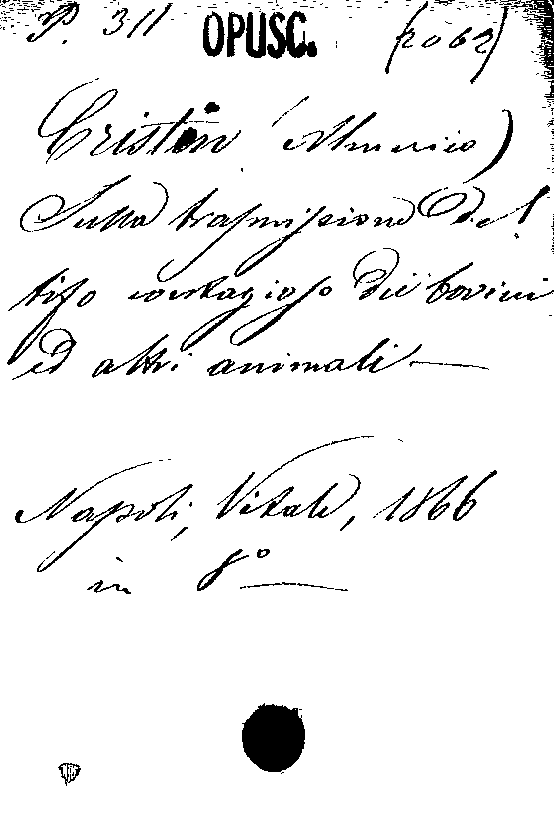 P. 311 OPUSC. (2062)
Cristin (Almerico)
Sulla trasmissione del
tifo contagioso dei bovini
ed altri animali —
Napoli, Vitale, 1866
in 8º